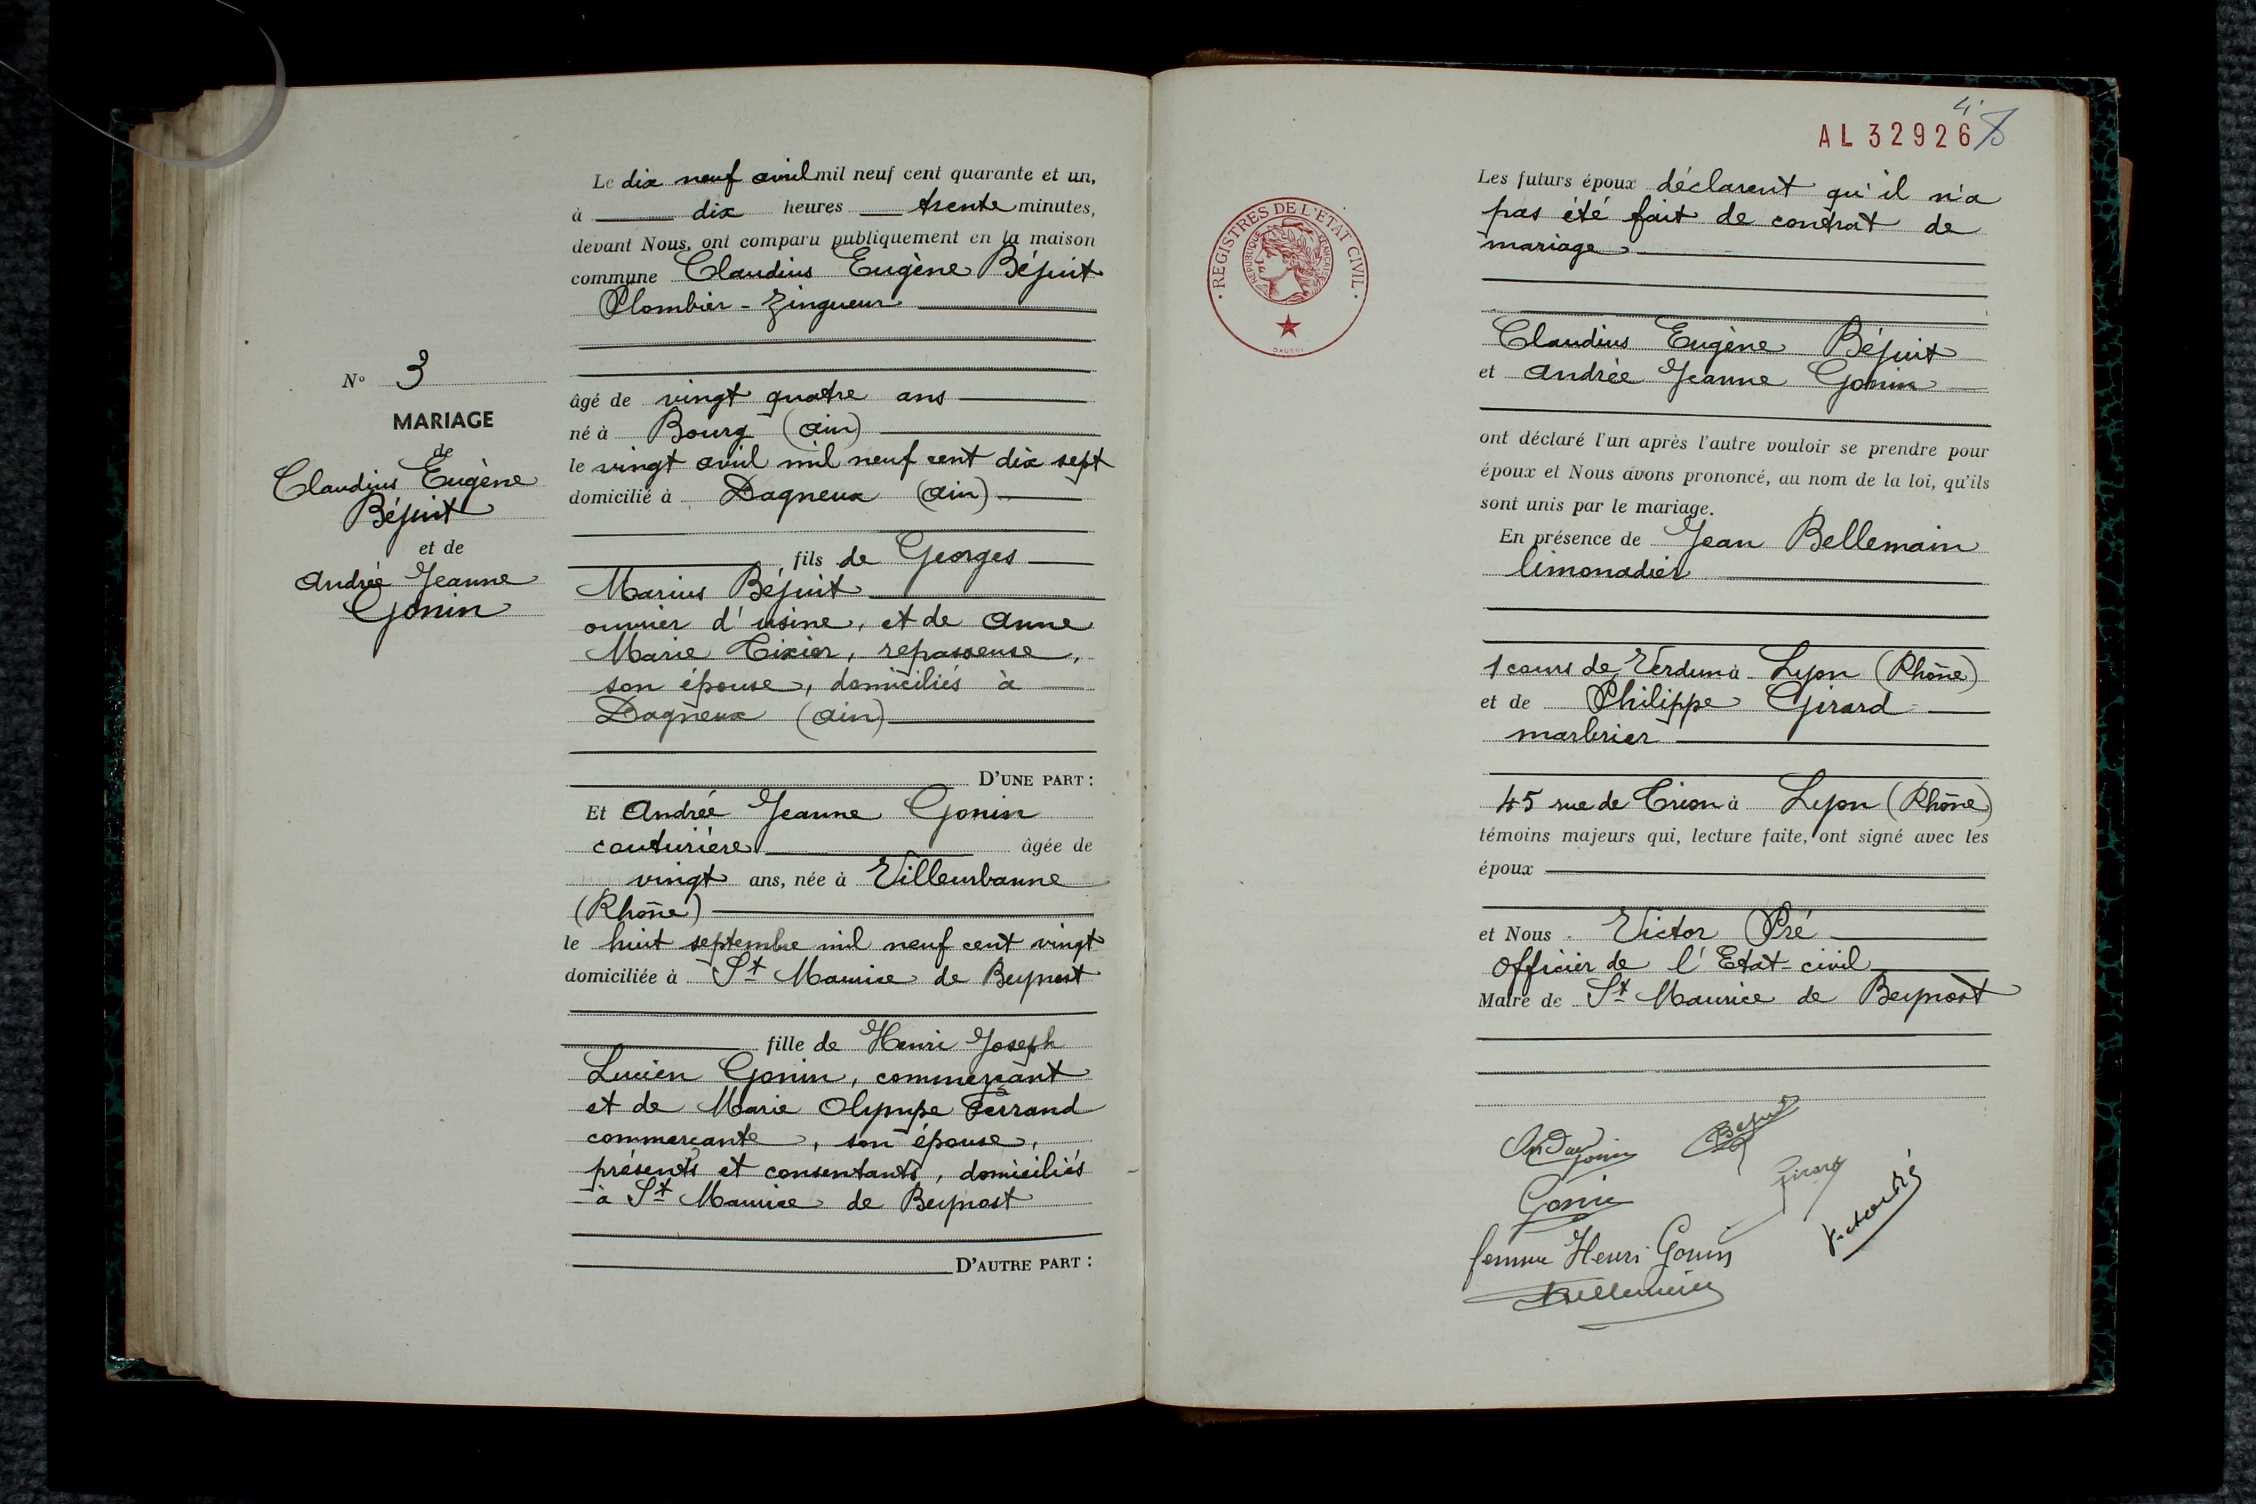 Le dix neuf avril mil neuf cent quarante et un,
à dix heures trente minutes,
devant Nous, ont comparu publiquement en la maison
commune Claudius Eugène Béjuit
Plombier - Zingueur
âgé de vingt quatre ans
né à Bourg (Ain)
le vingt avril mil neuf cent dix sept
domicilié à Dagneux (Ain)
fils de Georges
Marius Béjuit
ouvrier d'usine, et de Anne
Marie Tixier, repasseuse,
son épouse, domiciliés à
Dagneux (Ain)
D'UNE PART :
Et Andrée Jeanne Gonin
couturière âgée de
vingt ans, née à Villeurbanne
(Rhône)
le huit septembre mil neuf cent vingt
domiciliée à St Maurice de Beynost
fille de Henri Joseph
Lucien Gonin, commerçant
et de Marie Olympe Ferrand
commerçante, son épouse,
présents et consentants, domiciliés
à St Maurice de Beynost
D'AUTRE PART :
N° 3
MARIAGE
de
Claudius Eugène
Béjuit
et de
Andrée Jeanne
Gonin
AL 32926
REGISTRES DE L'ETAT CIVIL
REPUBLIQUE FRANÇAISE
Les futurs époux déclarent qu'il n'a
pas été fait de contrat de
mariage
Claudius Eugène Béjuit
et Andrée Jeanne Gonin
ont déclaré l'un après l'autre vouloir se prendre pour
époux et Nous avons prononcé, au nom de la loi, qu'ils
sont unis par le mariage.
En présence de Jean Bellemain
limonadier
1 cours de Verdun à Lyon (Rhône)
et de Philippe Girard
marbrier
45 rue de Trion à Lyon (Rhône)
témoins majeurs qui, lecture faite, ont signé avec les
époux
et Nous Victor Pré
Officier de l'Etat-civil
Maire de St Maurice de Beynost
Gonin
Béjuit
Girard
Gonin
Victor Pré
femme Henri Gonin
Bellemain